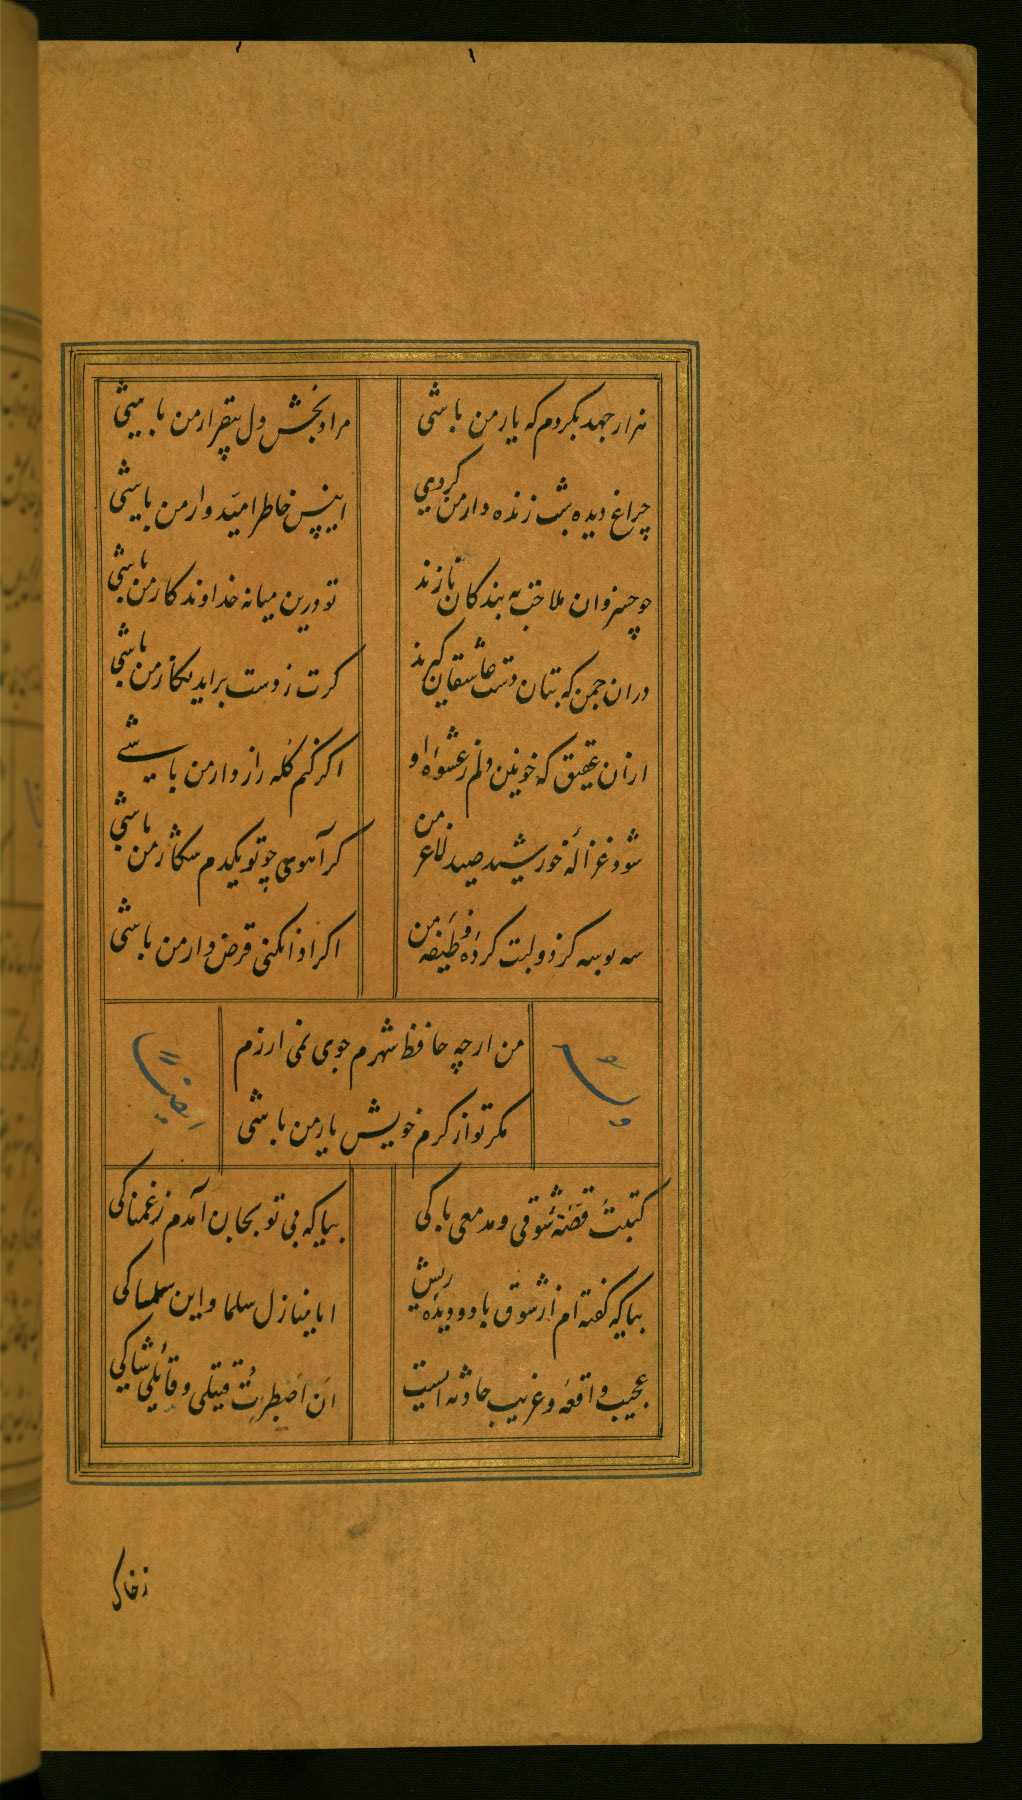 هزار جهد بکردم که یار من باشی
مراد بخش دل بیقرار من باشی
چراغ دیده شب زنده دار من کردی
انیس خاطر امید وار من باشی
چو خسروان ملاحت به بندکان نازند
تو درین میانه خداوند کار من باشی
دران چمن که بتان دست عاشقان کیرند
کرت ز دست براید نکار من باشی
ازان عقیق که خونین دلم ز عشوهٔ او
اکر کنم کله راز دار من باشی
شود غزالهٔ خورشید صید لاغر من
کر آهوی چو تو یکدم شکار من باشی
سه بوسه کز دو لبت کردهٔ وظیفه من
اکر ادا نکنی قرض دار من باشی
من ارچه حافظ شهرم جوی نمی ارزم
مکر تو از کرم خویش یار من باشی
وله
ایضا
کتبت قصة شوقی و مدمعی باکی
بیا که بی تو بجان آمدم ز غمناکی
بیا که کفته ام از شوق با دو دیده ریش
ایا منازل سلما و این سلماکی
عجیب واقعه و غریب حادثه ایست
ان اضطرت قتیلی و قاتلی شاکی
ز خاک